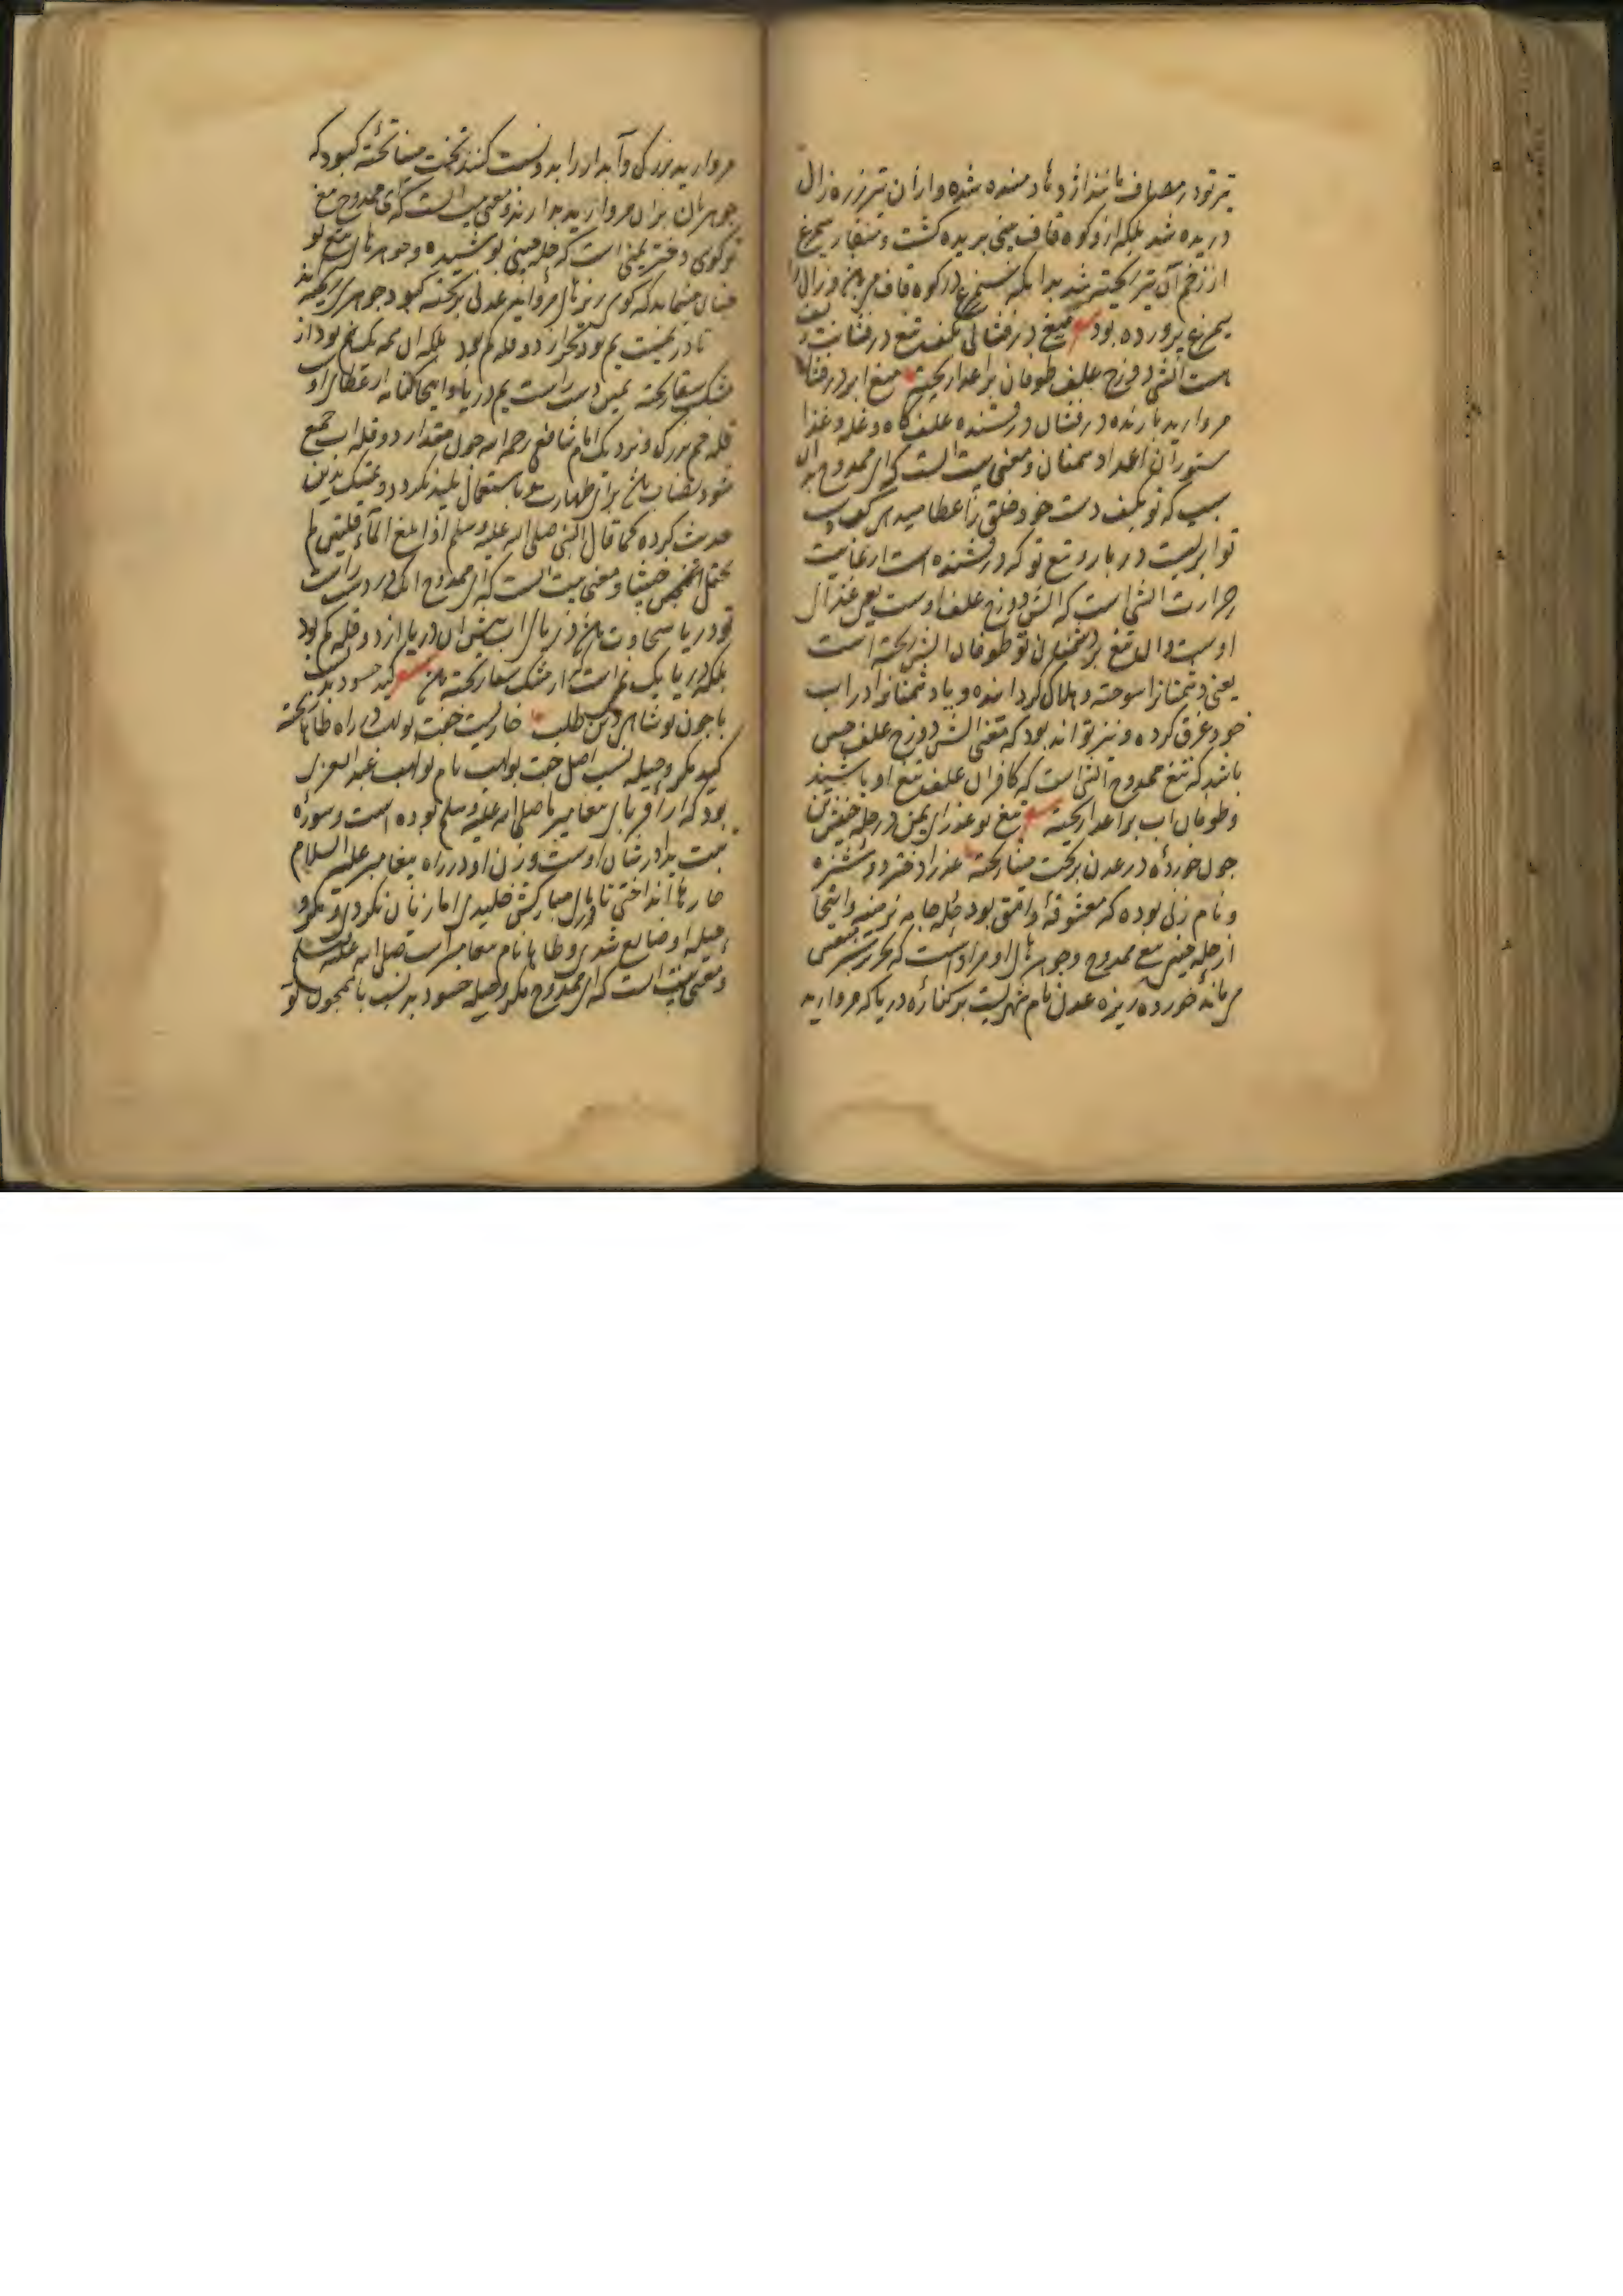 تیر تو در مصاف مانند اژدها دمنده شده و ازان تیر زره زال
دریده شد بلکه ازو کوه قاف بیخ بریده گشت و منقار سیمرغ
از زخم آن تیر ریخته شد بدانکه سیمرغ در کوه قاف و زال را
سیمرغ پرورده بود میغ درفشانی بکف تیغ درفشانت بکف
هست آتش دوزخ علف طوفان بر اعدا ریخته میغ ابر درفشان
مروارید بارنده درفشان درخشنده علف کاه و غله و غذا
ستوران اعدا دشمنان و معنی بیت آنست که ای ممدوح بدان
سبب که تو بکف دست خود خلق را عطا میدهی کف
تو ابریست دربار و تیغ تو که درخشنده است از غایت
حرارت آتشی است که آتش دوزخ علف اوست یعنی غذای
اوست و آن تیغ بر دشمنان تو طوفان آتش ریخته است
یعنی دشمنانرا سوخته و هلاک گردانیده و یا دشمنانرا در آب
خود غرق کرده و نیز تواند بود که معنی آتش دوزخ علف
باشد که تیغ ممدوح آتش است که کافران علف تیغ او باشند
و طوفان آب بر اعدا ریخته تیغ تو عذرای یمن در حله
چون خورده در عدن بر تخت مینا ریخته عذرا دختر دوشیزه
و نام زنی بوده که معشوقه وامق بود حله جامه و اینجا
از حله چینی تیغ ممدوح و جوهرهای او مراد است که
خورده ریزه عدن نام شهریست بر کناره دریا که مروارید
مروارید بزرگ و آبدار را بدست کنند تخت مینا تخته کبود که
جوهریان بران مروارید بدارند و معنی بیت آنست که ای ممدوح تیغ
تو گوی دختر یمنی است که حله چینی پوشیده و جوهرهای تیغ تو
چنان مینماید که گوی ریزهای مروارید عدنی بر تخته کبود جوهری ریخته
نادر یمینت یم بود کز از دو قله کم بود بلکه آن همه یک نم بود از
مشک سقا ریخته یمین دست راست یم دریا و اینجا کنایه از عطای او
قله خم بزرگ و نزدیک امام شافعی رحمه الله چون مقدار دو قله آب جمع
شود برای طهارت باستعمال پلید نگردد و تمسک بدین
حدیث کرده کما قال النبی صلی الله علیه وسلم اذا بلغ الماء قلتین لم
یحتمل خبثا و معنی بیت آنست که ای ممدوح در دست راست
تو دریا سخاوت پیش آن دریا از دو قله کم بود
بلکه دریا یک نم است که از مشک سقا ریخته کید حسود بد نسب
با چون تو شاهی دین طلب خاریست جفت بولهب در راه طاها ریخته
کید مکر و حیله نسب اصل جفت بولهب نام بولهب عبد العزی
بود که از اقربای پیغامبر ما صلی الله علیه وسلم بوده است و سوره
تبت یدا در شان اوست و زن او در راه پیغامبر علیه السلام
خارها انداختی تا پای مبارکش خلیدی اما زیان نکردی و مکر و
حیله او ضایع شدی و طاها نام پیغامبر است صلی الله علیه وسلم
و معنی بیت آنست که ای ممدوح مکر و حیله حسود بد نسب با همچون تو